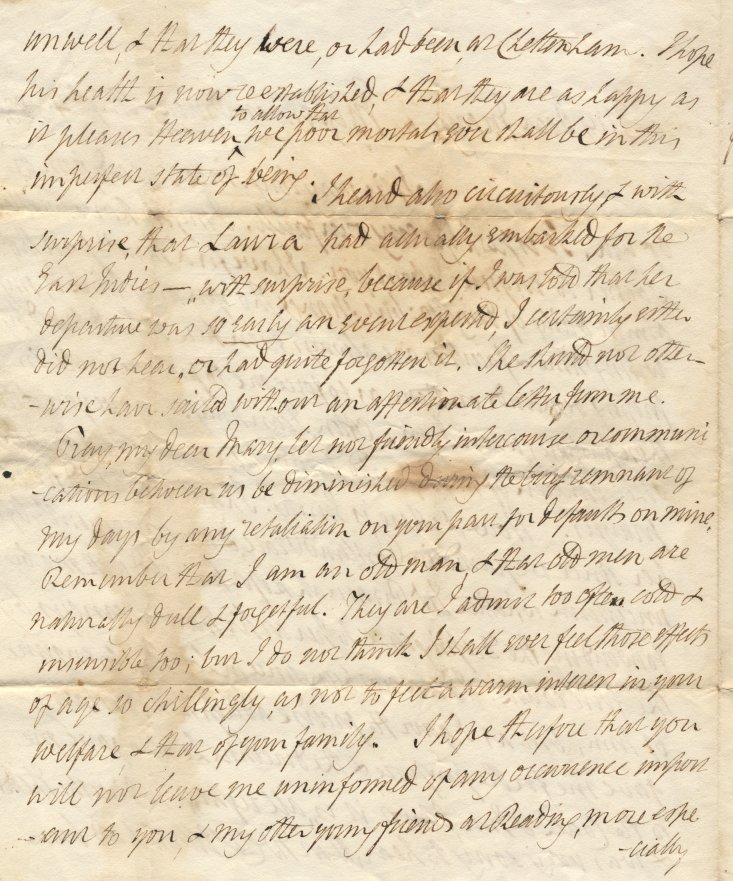 unwell, & that they were, or had been, at Cheltenham. I hope
his health is now reestablished, & that they are as happy as
to allow that
it pleases Heaven ^ we poor mortals ever shall be in this
imperfect state of being.
I heard also circuitously & with
surprise, that Laura had actually embarked for the
East Indies — with surprise, because if I was told that her
departure was so early an event expected, I certainly either
did not hear, or had quite forgotten it. She should not other-
-wise have sailed without an affectionate letter from me.
Pray, my dear Mary, let not friendly intercourse or communi
-cations between us be diminished during the brief remnant of
my days by any retaliation on your part for defaults on mine.
Remember that I am an old man, & that old men are
naturally dull & forgetful. They are I admit too often cold &
insensible too; but I do not think I shall ever feel those effects
of age so chillingly, as not to feel a warm interest in your
welfare, & that of your family. I hope therefore that you
will not leave me uninformed of any occurrence import
-ant to you, & my other young friends at Reading, more espe
-cially